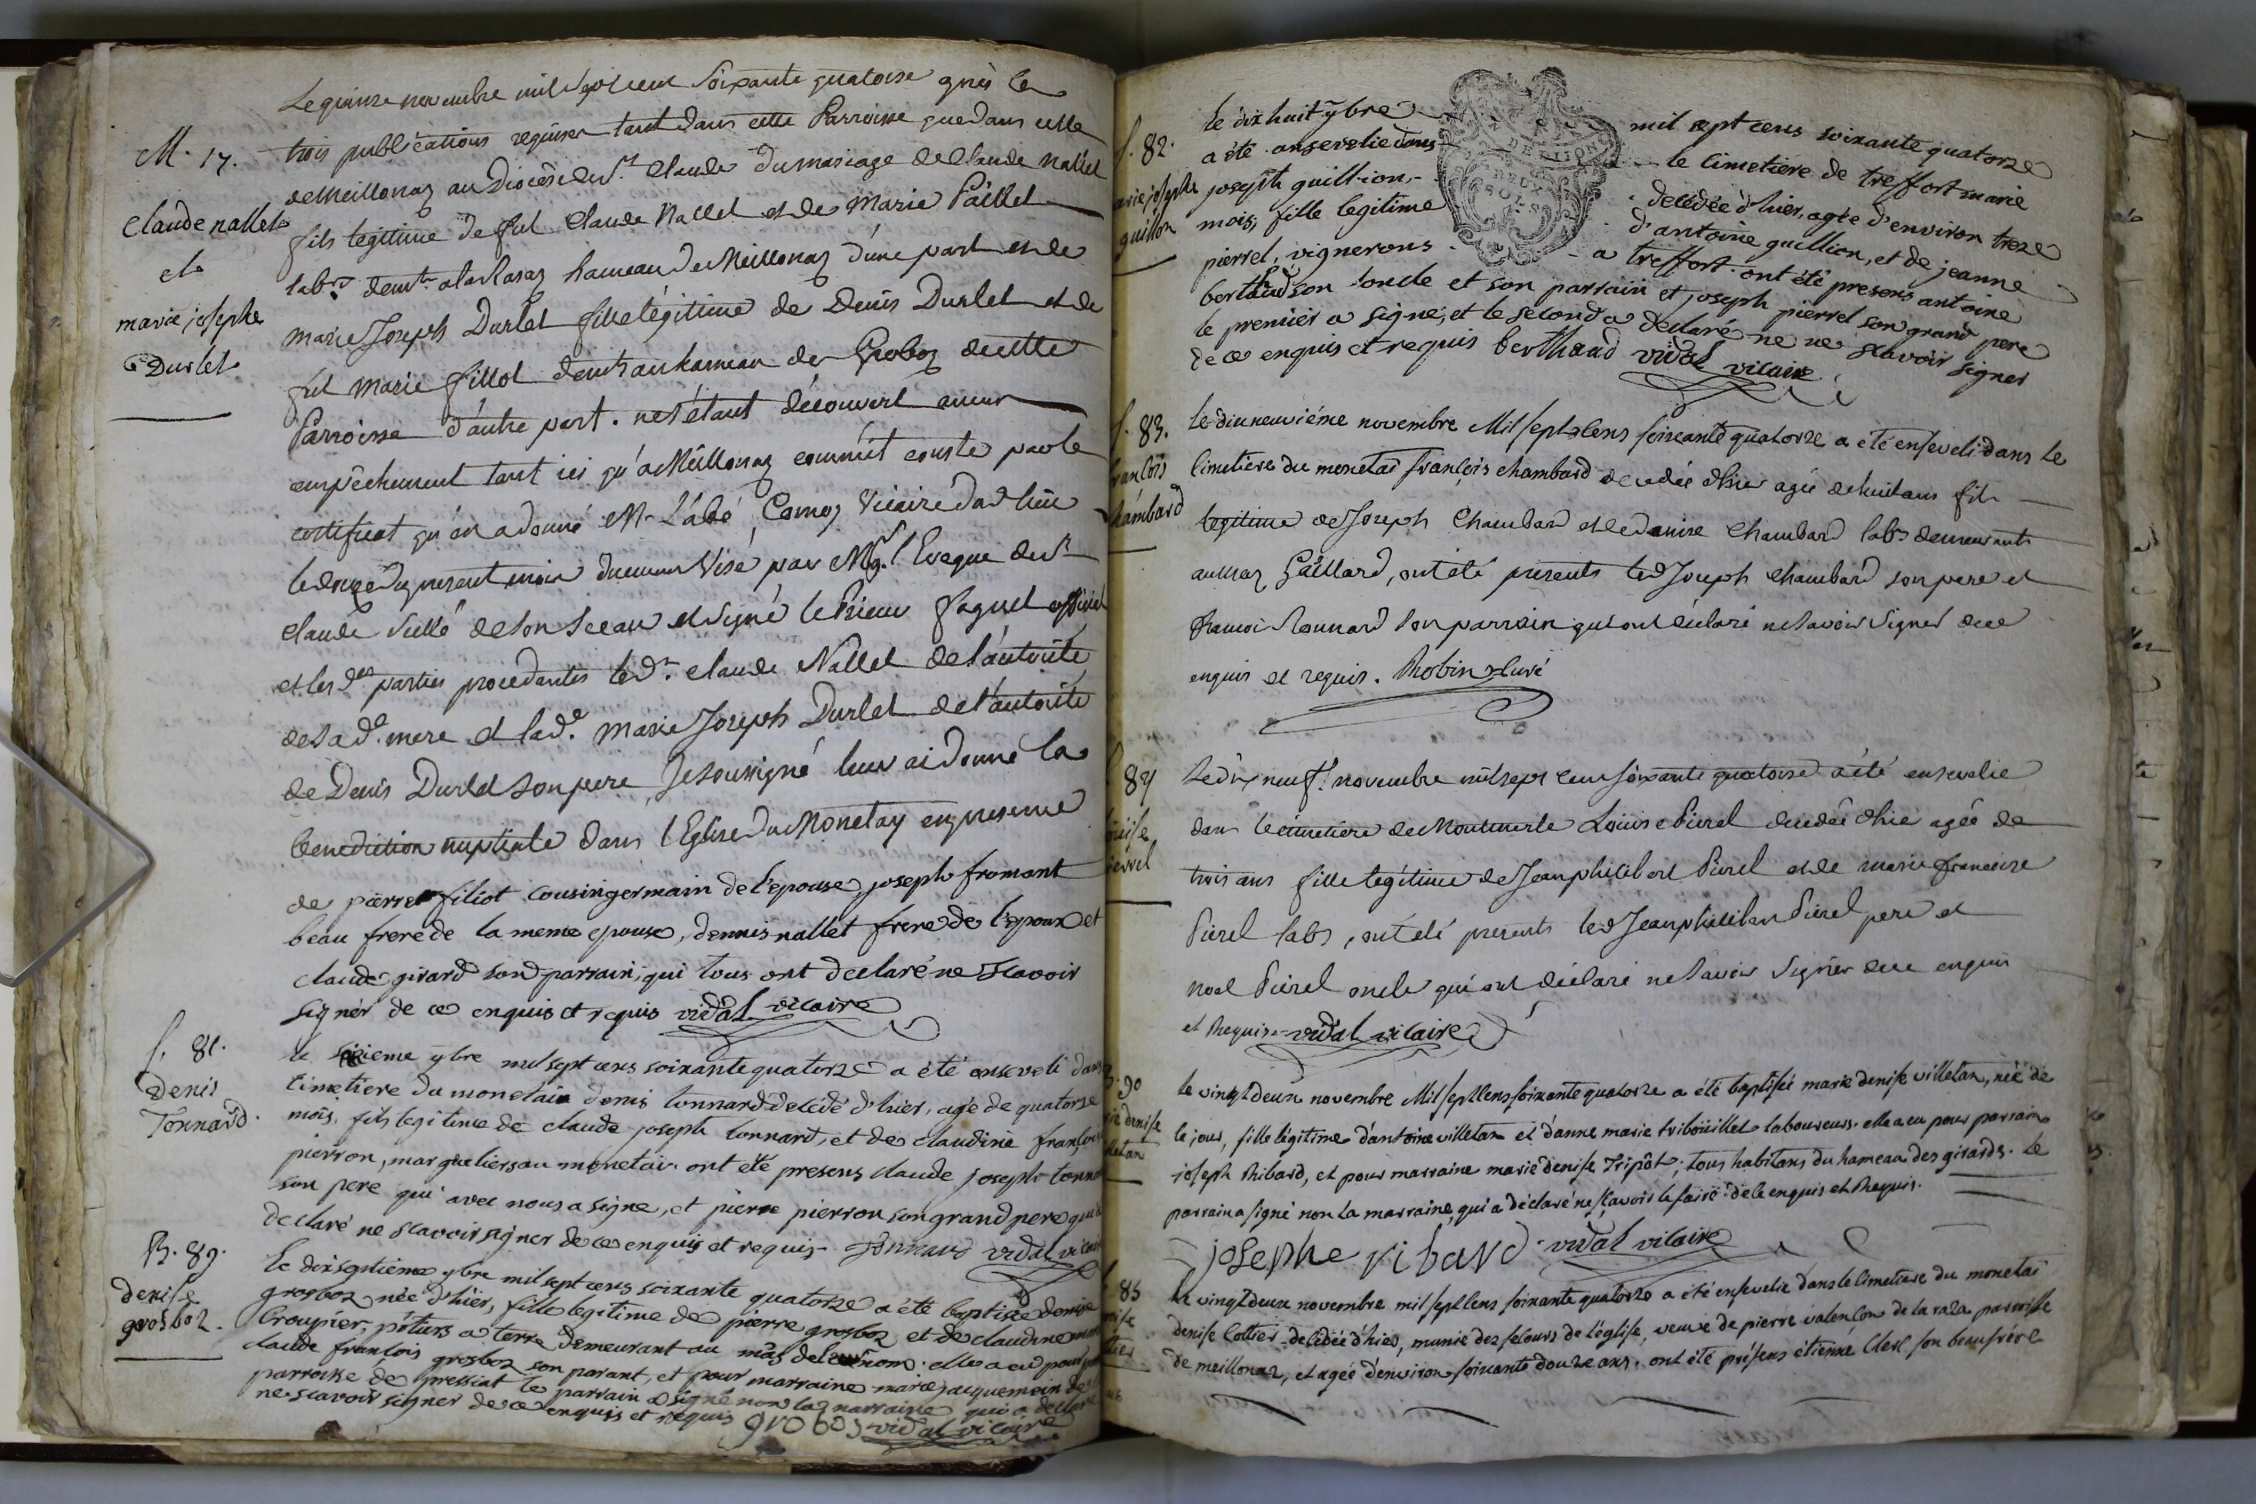 Le quinze novembre mil sept cent soixante quatorse après les
M. 17. trois publications requises tant dans cette Parroisse que dans celle
de Meillonaz au Diocèse de St. Claude du mariage de Claude Nallet
Claude nallet
et
marie josephe
Durlet
fils legitime de fut Claude Nallet et de Marie Paillet
labr. demt. a la Razaz hameau de Meillonaz d'une part et de
Marie Joseph Durlet fille légitime de Denis Durlet et de
fut Marie fillot demt au hameau de Groboz de cette
Parroisse d'autre part. ne s'étant découvert aucun
empêchement tant ici qu'a Meillonaz comme il conste par le
certificat qu'en a donné Mr. L'abé Vicaire dud. lieu
le douze du present mois duement Visé par Mgr. l'Eveque de St
Claude scellé de son sceau et signé le Prieur faguet official
et les des parties procedantes led. Claude Nallet de l'autorité
de sa de. mere et lade. Marie Joseph Durlet de l'autorité
de Denis Durlet son pere, Je soussigné leur ai donné la
benediction nuptiale dans l'Eglise du Monetay en presence
de pierre filiot cousin germain de l'epouse, joseph fromont
beau frere de la meme epouse, dennis nallet frere de l'epoux et
claude girard son parrain, qui tous ont declaré ne scavoir
signer de ce enquis et requis vidal vicaire
S. 81.
Denis
Tonnard.
le ybre mil sept cens soixante quatorze a été enseveli dans
cimetiere du monetai denis tonnard decédé d'hier, agé de quatorze
mois, fils legitime de claude joseph tonnard, et de claudine françoise
pierron, marguelier au monetai. ont été presens claude joseph tonnard
son pere qui avec nous a signe, et pierre pierron son grand pere qui a
declaré ne scavoir signer de ce enquis et requis. Tonnard vidal vicaire
B. 89.
denise
grosboz.
le dixseptieme ybre mil sept cens soixante quatorze a été baptisée denise
grosboz née d'hier, fille legitime de pierre grosboz et de claudine marie
croupier, potiers a terre demeurant au mas de nom. elle a eu pour parrain
claude françois grosboz son parent, et pour marraine marie jacquemin de
parroisse de pressiat le parrain a signé non la marraine qui a declaré
ne scavoir signer de ce enquis et requis grobos vidal vicaire
S. 82.
marie josephe
guillon
le dix huit ybre mil sept cens soixante quatorze
a été ensevelie dans le cimetiere de treffort marie
joseph guillion, decédée d'hier, agée d'environ treze
mois, fille legitime d'antoine guillion, et de jeanne
pierrel, vignerons a treffort. ont été presens antoine
berthaud son oncle et son parrain et joseph pierrel son grand pere
le premier a signé, et le second a declaré ne ne scavoir signer
de ce enquis et requis berthaud vidal vicaire
S. 83.
françois
chambard
Le dixneuviéme novembre Mil sept cens soixante quatorze a été enseveli dans le
cimetiere du monetai françois chambard decedé d'hier agé de huit ans fils
legitime de Joseph Chambard et de denise Chambard labrs demeurants
au Mas Gaillard, ont été presents led Joseph Chambard son pere et
francois Tonnard son parrain qui ont déclaré ne savoir signer de ce
enquis et requis. Robin Curé
84
louise
pierrel
Le dix neuf. novembre mil sept cent soixante quatorse a été ensevelie
dans le cimetiere de Montmerle Louise Pierel decedée d'hier agée de
trois ans fille legitime de Jean philibert Pierel et de marie francoise
Pierel labrs, ont été presents led Jean philibert Pierel pere et
noel Pierel oncle qui ont déclaré ne savoir signer de ce enquis
et Requis. vidal vicaire
B. 90
marie denise
villetan
le vingt deux novembre Mil sept cens soixante quatorze a été baptisée marie denise villetan, née de
le jour, fille légitime d'antoine villetan et d'anne marie triboüillet laboureurs. elle a eu pour parrain
joseph Ribard, et pour marraine marie denise Tripôt, tous habitans du hameau des girards. le
parrain a signé non la marraine qui a déclaré ne scavoir le faire de ce enquis et Requis.
josephe ribard vidal vicaire
85
denise
cottier
le vingt deux novembre mil sept cens soixante quatorze a été ensevelie dans le cimetiere du monetai
denise Cottier decédée d'hier, munie des secours de l'église, veuve de pierre valencon de la raza parroisse
de meillonaz, et agée d'environ soixante douze ans. ont été présens étienne Clerc son beaufrére